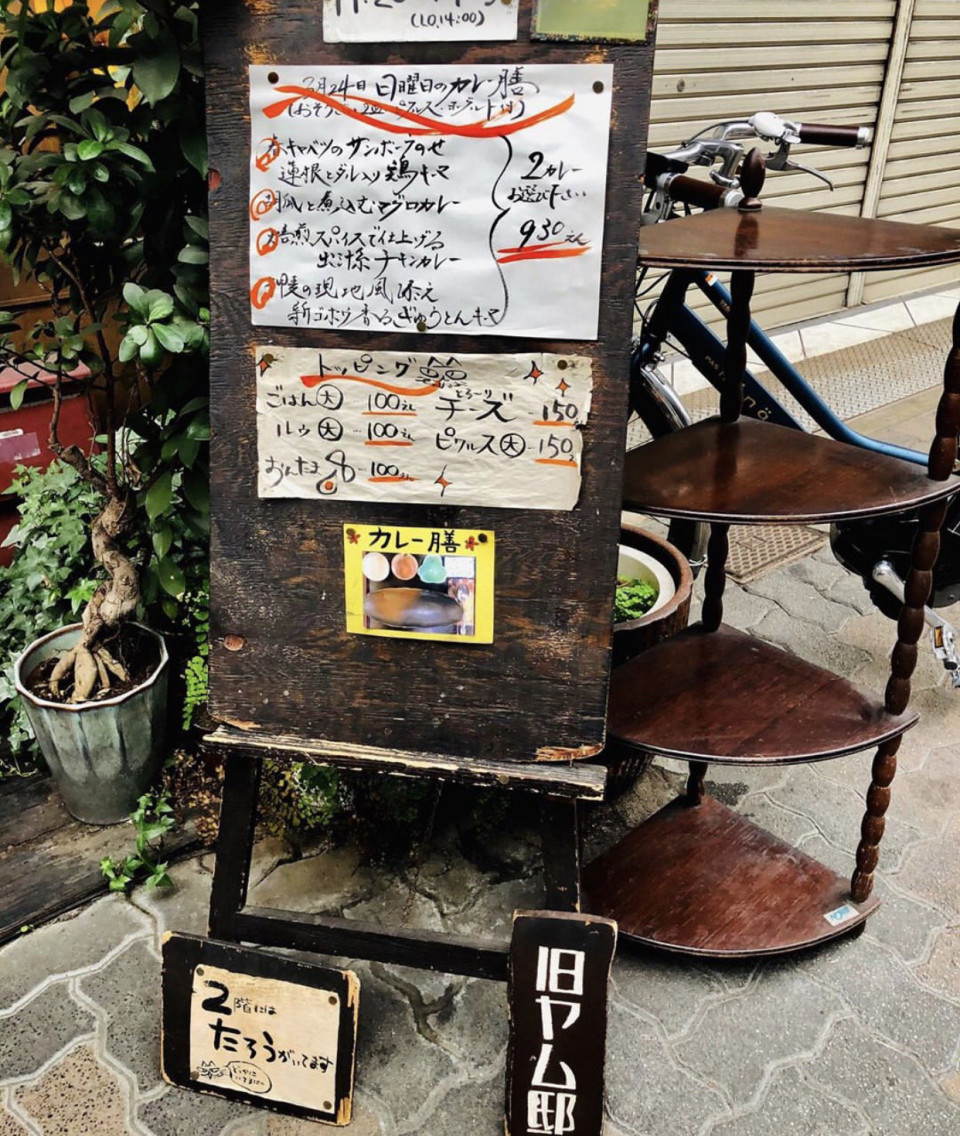 (LO,14:00)
3月24日 日曜日のカレー膳
春キャベツのサンボーラのせ
蓮根とダル入り鶏キーマ
胡瓜と煮込むマグロカレー
焙煎スパイスで仕上げる
出汁系チキンカレー
鴨の現地風添え
新ゴボウ香るぎゅうとんキーマ
2カレー
お選び下さい
930えん
トッピング
ごはん大 100えん
ルゥ大 100えん
おんたま 100えん
とろ〜り
チーズ 150
ピクルス大 150
カレー膳
2階には
たろうがいてます
旧ヤム邸